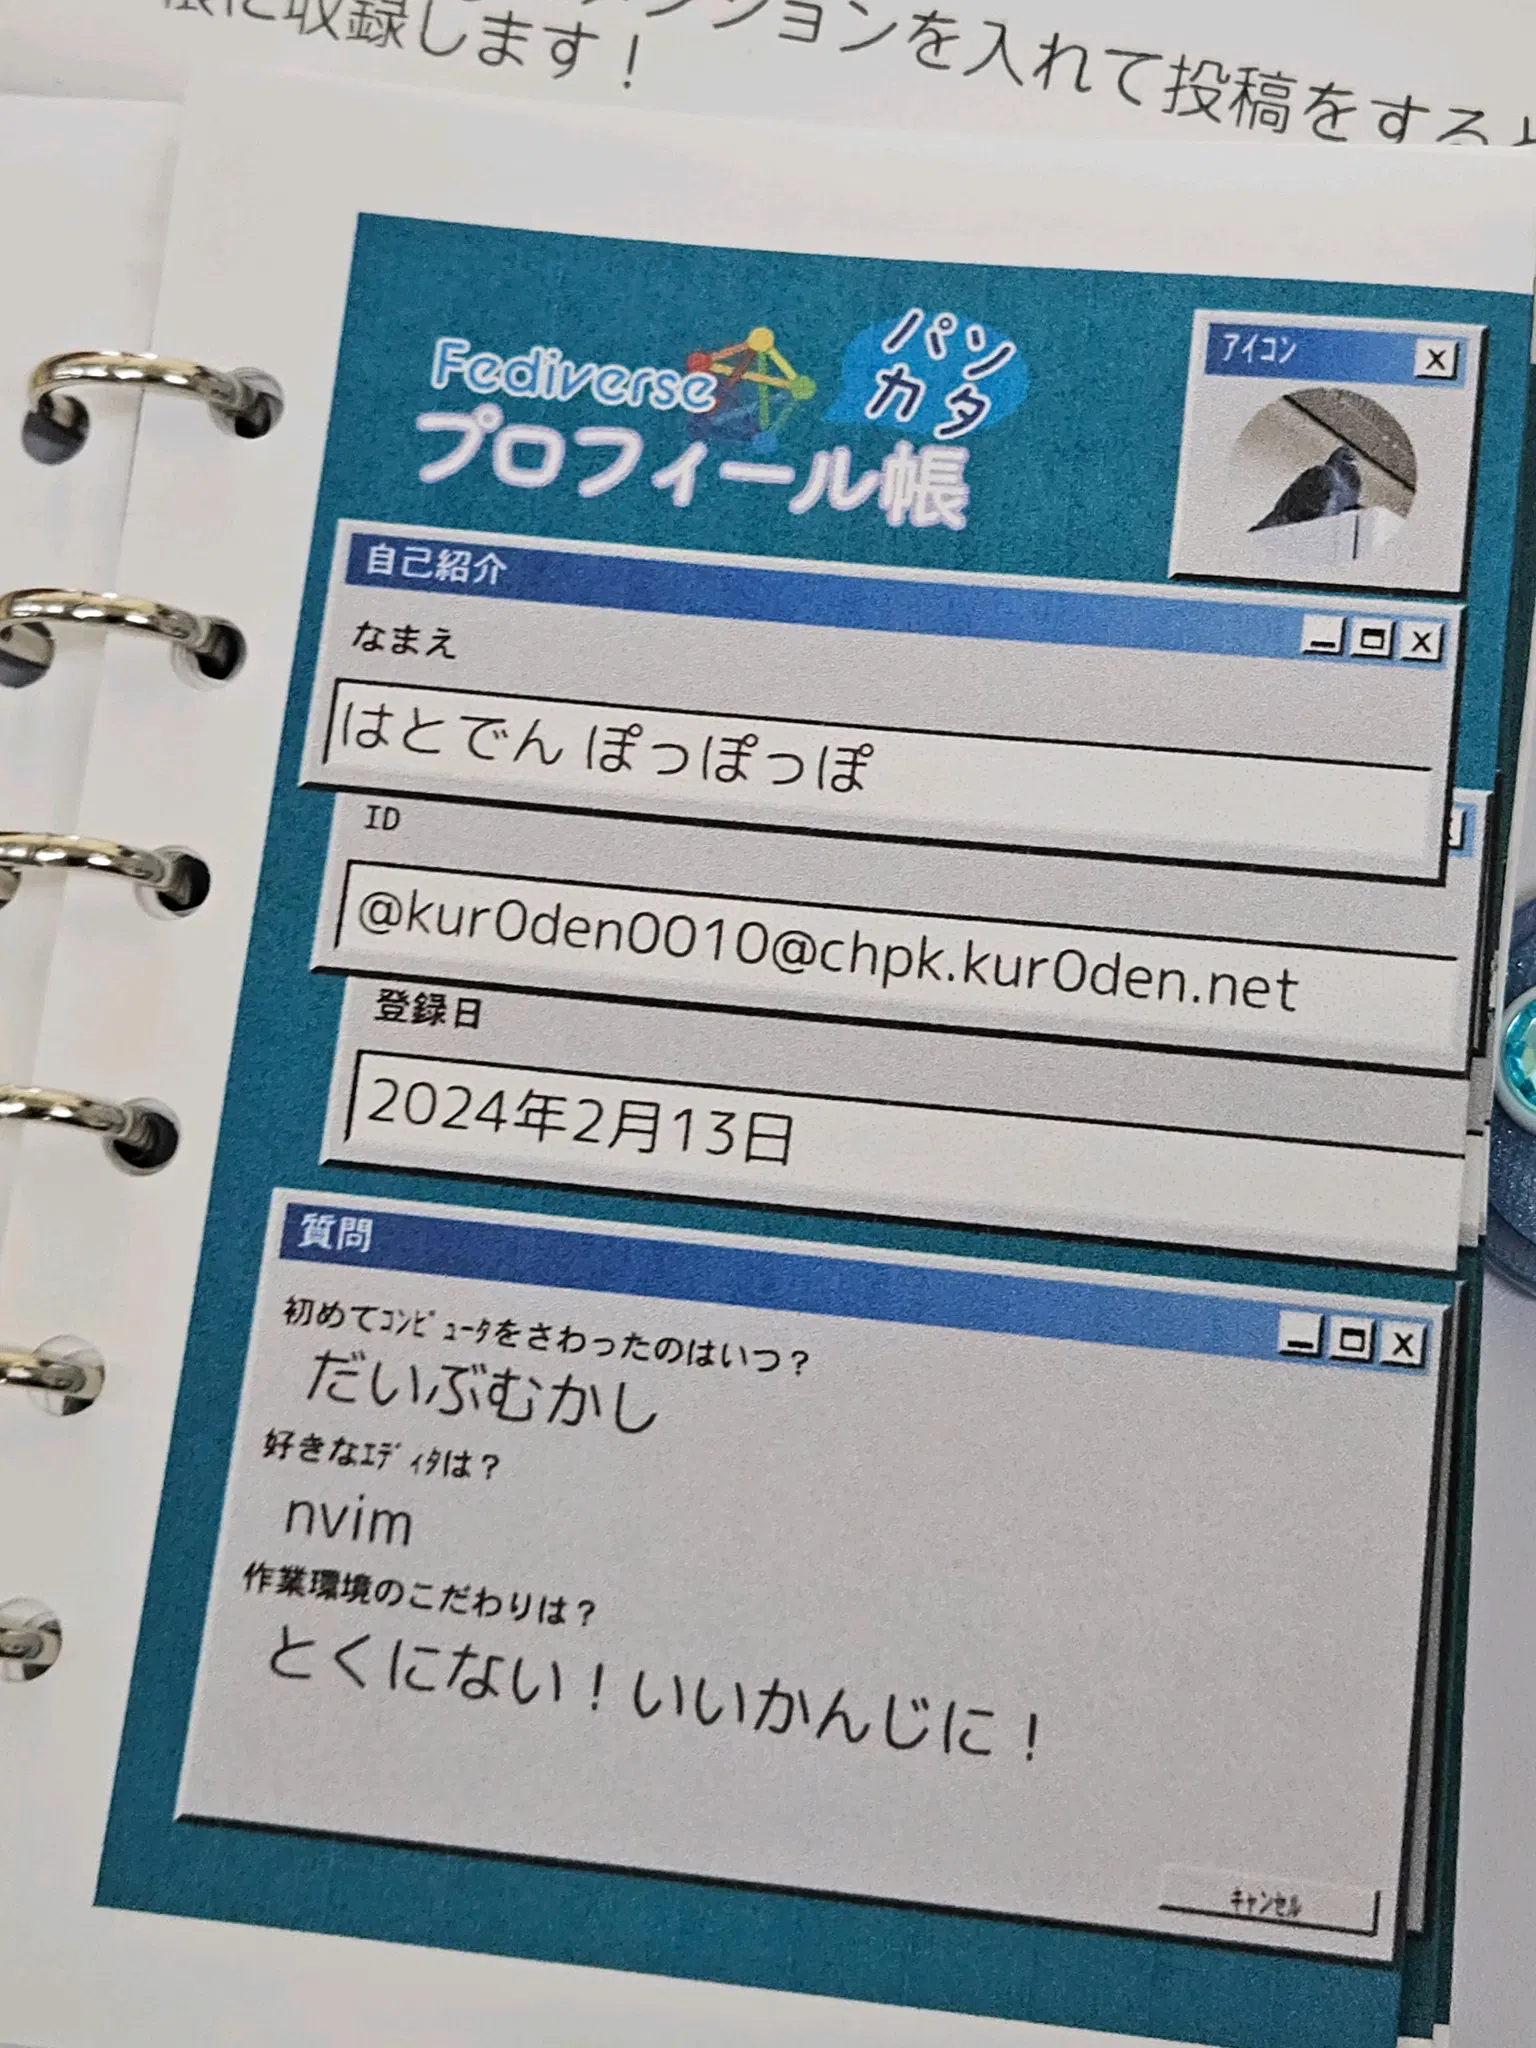 ションを入れて投稿をすると
帳に収録します！
Fediverse
パンカタ
プロフィール帳
アイコン
自己紹介
なまえ
はとでん ぽっぽっぽ
ID
@kur0den0010@chpk.kur0den.net
登録日
2024年2月13日
質問
初めてｺﾝﾋﾟｭｰﾀをさわったのはいつ？
だいぶむかし
好きなｴﾃﾞｨﾀは？
nvim
作業環境のこだわりは？
とくにない！いいかんじに！
ｷｬﾝｾﾙ